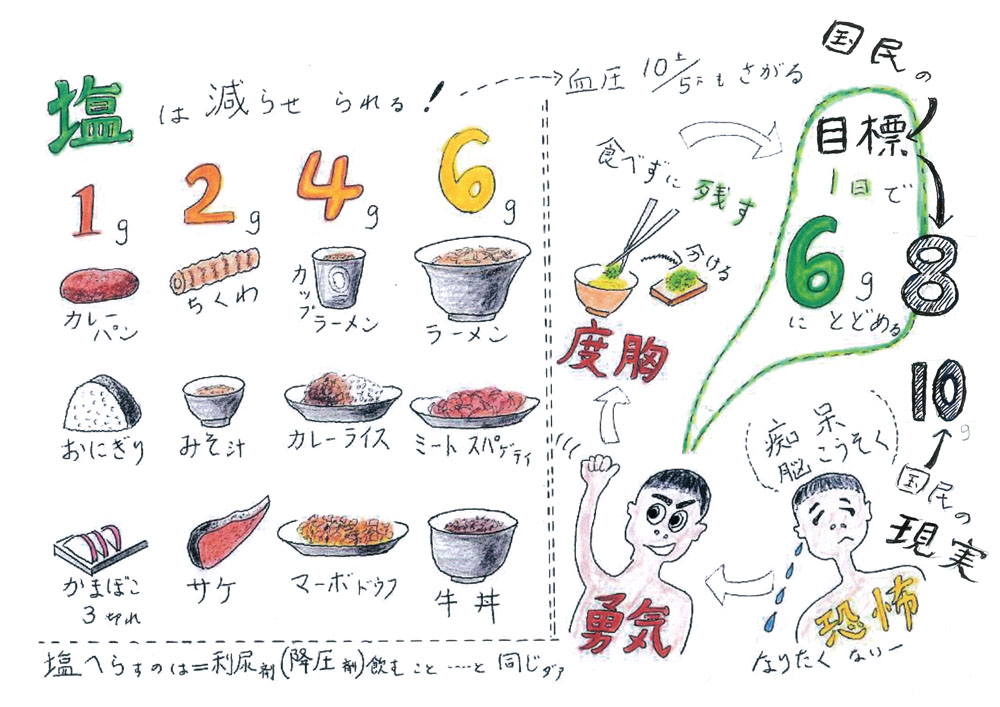 塩は減らせられる!
血圧 10/5下もさがる
1g
2g
4g
6g
カレーパン
ちくわ
カップラーメン
ラーメン
おにぎり
みそ汁
カレーライス
ミートスパゲティ
かまぼこ
3切れ
サケ
マーボドウフ
牛丼
塩へらすのは=利尿剤(降圧剤)飲むこと……と同じダァ
食べずに残す
分ける
度胸
勇気
国民の
目標
1日で
6g
にとどめる
8
10g
国民の
現実
痴呆
脳こうそく
恐怖
なりたくないー